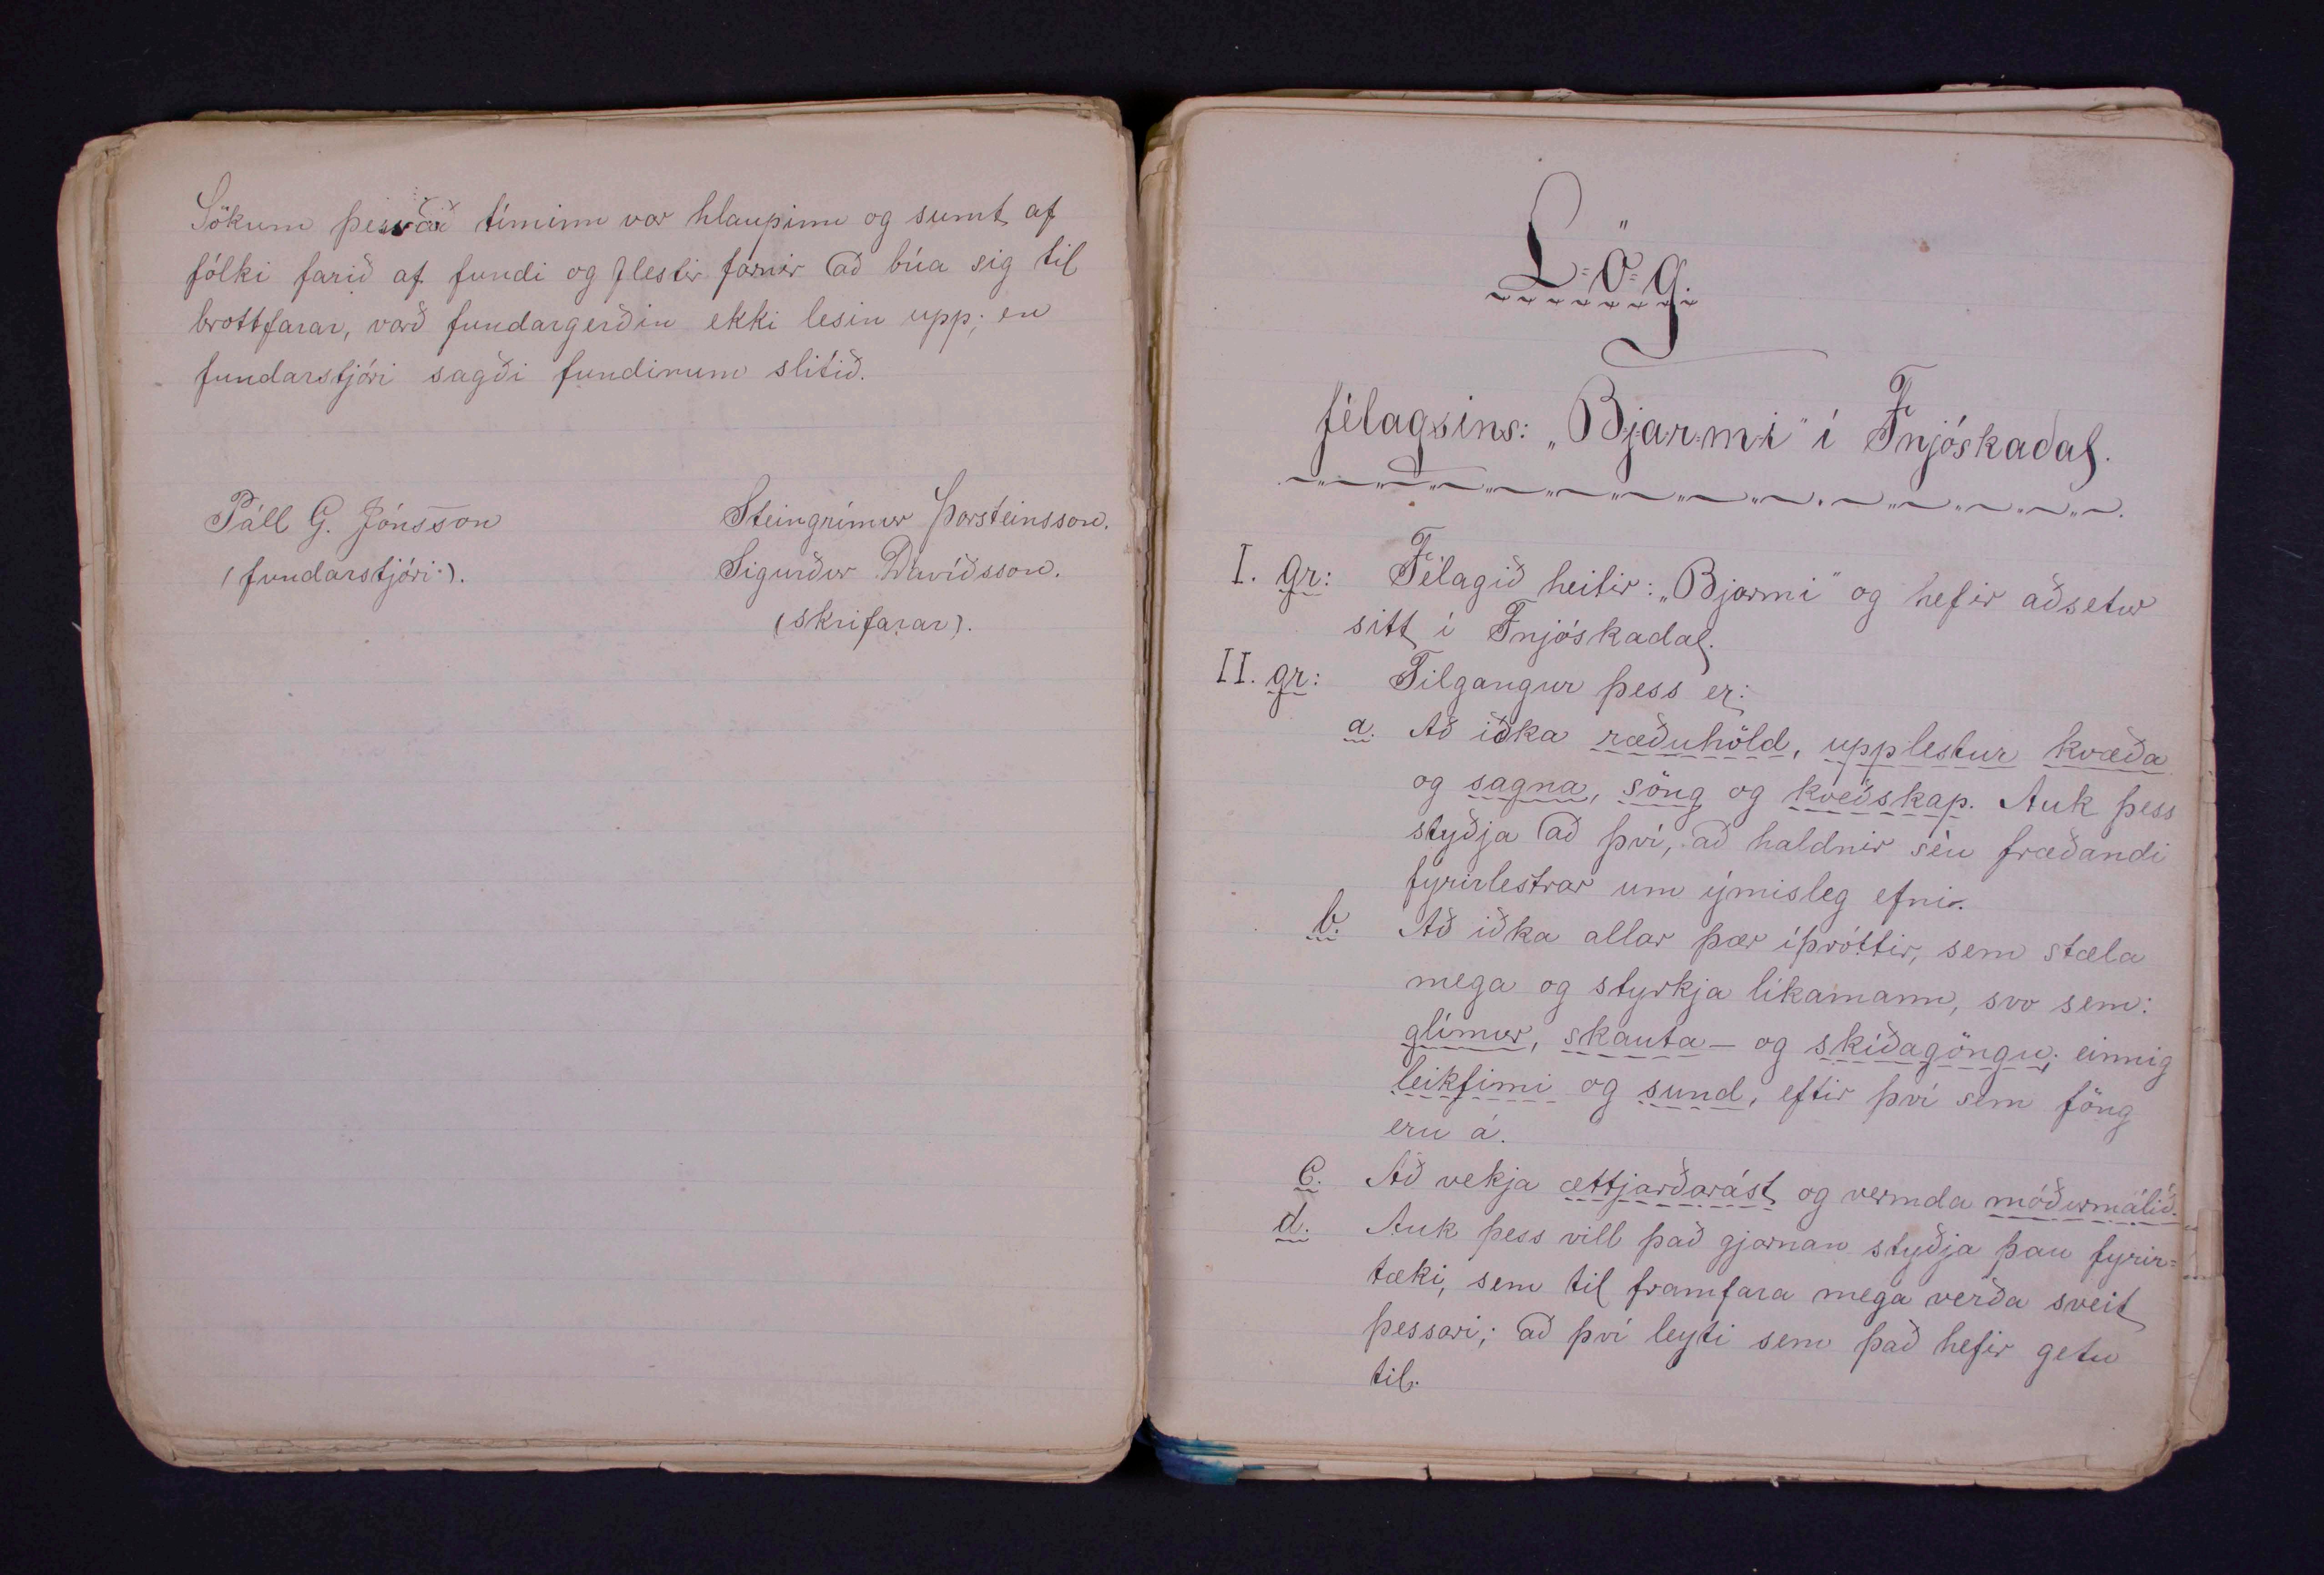 Sökum þess að tíminn var hlaupinn og sumt af
fólki farið af fundi og flestir farnir að búa sig til
brottfarar, varð fundargerðin ekki lesin upp; en
fundarstjóri sagði fundinum slitið.
Páll G. Jónsson
(fundarstjóri).
Steingrímur Þorsteinsson.
Sigurður Davíðsson.
(skrifarar).
L=ö=g.
félagsins: „Bjarmi" í Fnjóskadal.
I. gr: Félagið heitir: „Bjarmi" og hefir aðsetur
sitt í Fnjóskadal.
II. gr: Tilgangur þess er:
a. Að iðka ræðuhöld, upplestur kvæða
og sagna, söng og kveðskap. Auk þess
styðja að því, að haldnir séu fræðandi
fyrirlestrar um ýmisleg efni.
b. Að iðka allar þær íþróttir, sem stæla
mega og styrkja líkamann, svo sem:
glímur, skauta- og skíðagöngu; einnig
leikfimi og sund, eftir því sem föng
eru á.
c. Að vekja ættjarðarást og vernda móðurmálið.
d. Auk þess vill það gjarnan styðja þau fyrir=
tæki, sem til framfara mega verða sveit
þessari; að því leyti sem það hefir getu
til.